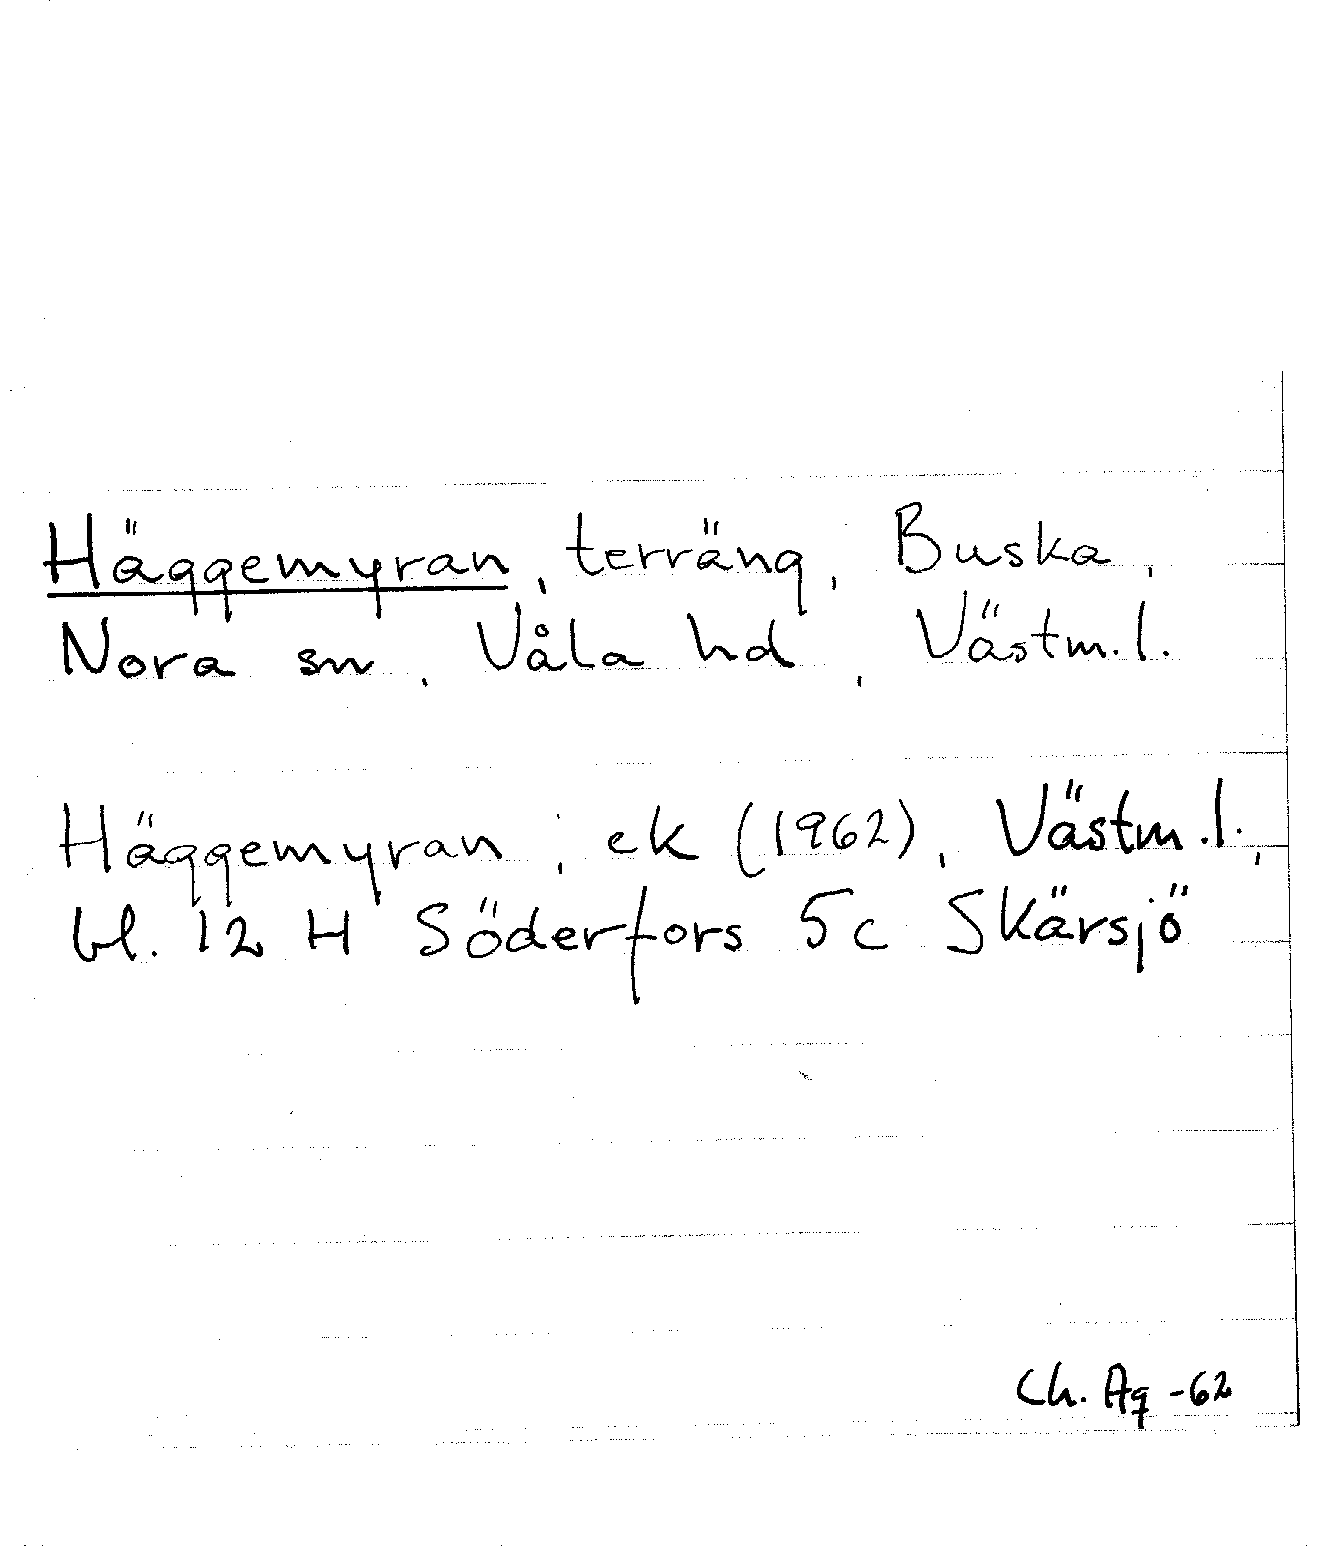 Häggemyran, terräng, Buska,
Nora sn, Våla hd, Västm.l.
Häggemyran, ek (1962), Västm.l.,
bl. 12 H Söderfors 5c Skärsjö
Ch. Ag -62